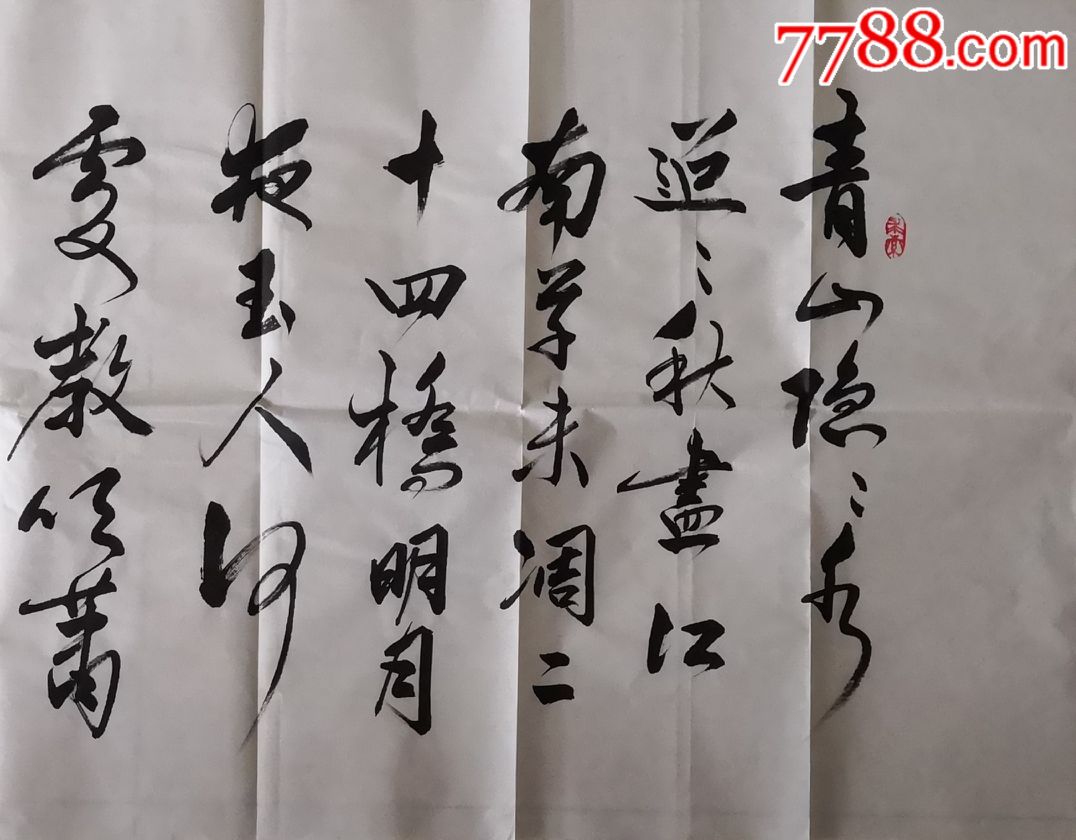 7788.com
青山隐〻水
迢〻秋盡江
南草未凋二
十四橋明月
夜玉人何
處教吹簫